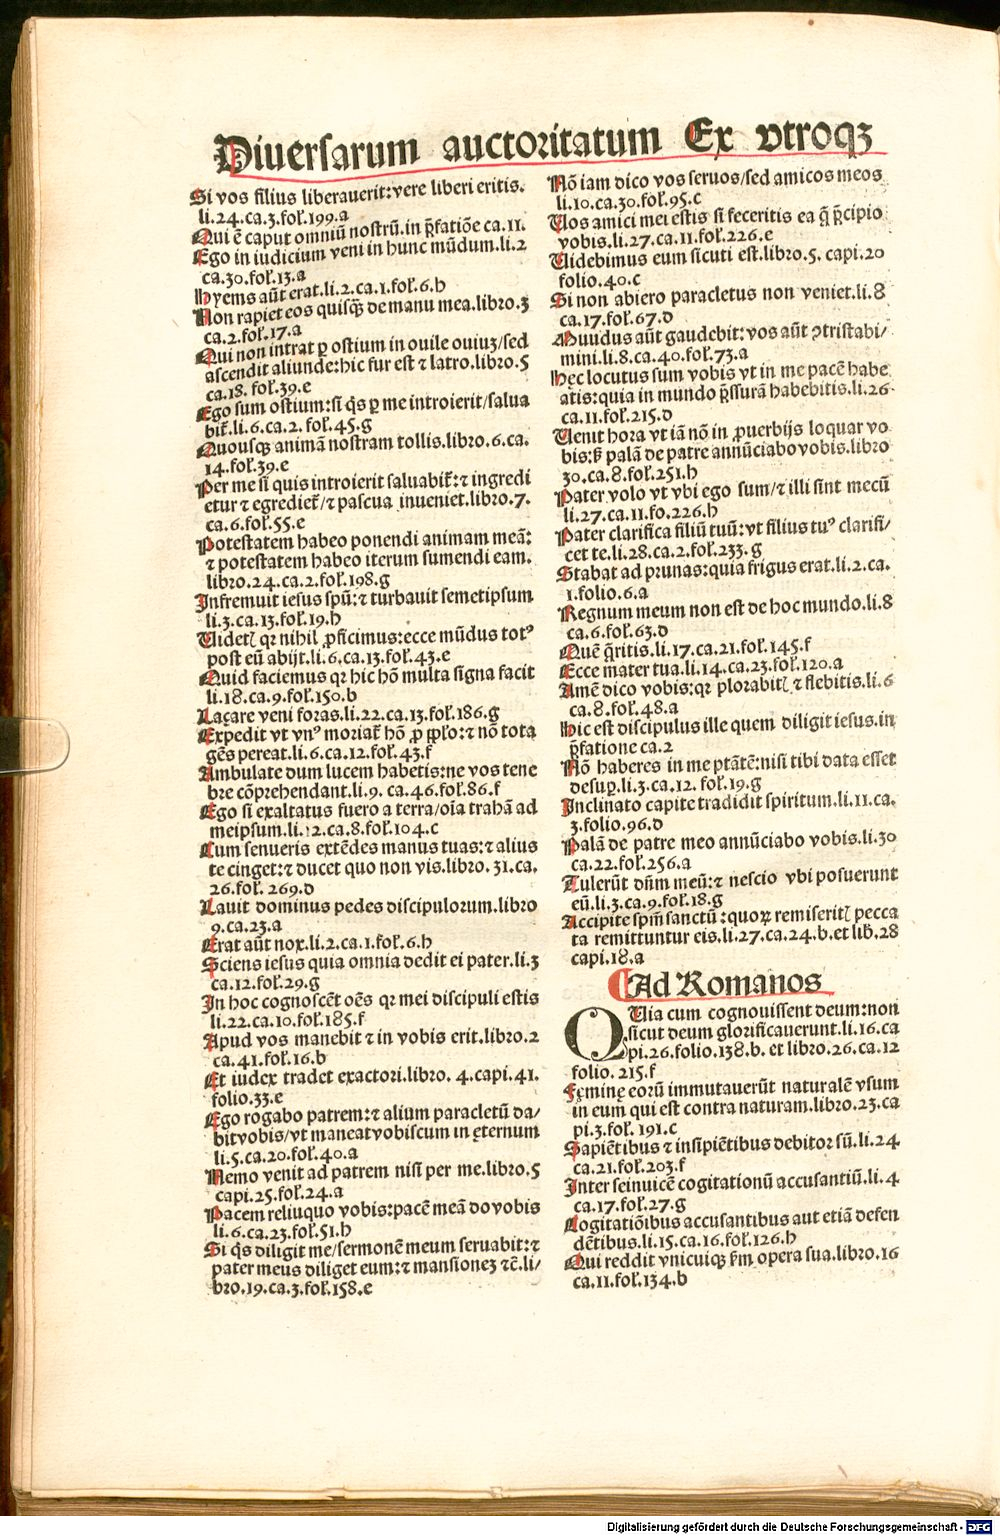 Diuersarum auctoritatum Ex vtroqꝫ
Si vos filius liberauerit:vere liberi eritis.
li.24.ca.3.fol̕.199.a
Qui ē caput omniū nostrū.in p̄fatiōe ca.11.
Ego in iudicium veni in hunc mūdum.li.2
ca.30.fol̕.13.a
Hyems aūt erat.li.2.ca.1.fol̕.6.h
Non rapiet eos quisqꝫ de manu mea.libro.3
ca.2.fol̕.17.a
Qui non intrat ꝑ ostium in ouile ouiuꝫ/sed
ascendit aliunde:hic fur est ⁊ latro.libro.5
ca.18.fol̕.39.e
Ego sum ostium:si q̄s ꝑ me introierit/salua
bit̕.li.6.ca.2.fol̕.45.g
Quousqꝫ animā nostram tollis.libro.6.ca.
14.fol̕.39.e
Per me si quis introierit saluabit̕:⁊ ingredi
etur ⁊ egrediet̕/⁊ pascua inueniet.libro.7.
ca.6.fol̕.55.e
Potestatem habeo ponendi animam meā:
⁊ potestatem habeo iterum sumendi eam.
libro.24.ca.2.fol̕.198.g
Infremuit iesus spū:⁊ turbauit semetipsum
li.3.ca.13.fol̕.19.h
Uidetꝭ qꝛ nihil ꝓficimus:ecce mūdus totꝰ
post eū abijt.li.6.ca.13.fol̕.43.e
Quid faciemus qꝛ hic hō multa signa facit
li.18.ca.9.fol̕.150.b
Laçare veni foras.li.22.ca.13.fol̕.186.g
Expedit vt vnꝰ moriat̕ hō ꝓ pp̄lo:⁊ nō tota
gēs pereat.li.6.ca.12.fol̕.43.f
Ambulate dum lucem habetis:ne vos tene
bre cōprehendant.li.9.ca.46.fol̕.86.f
Ego si exaltatus fuero a terra/oīa trahā ad
meipsum.li.12.ca.8.fol̕.104.c
Cum senueris extēdes manus tuas:⁊ alius
te cinget:⁊ ducet quo non vis.libro.31.ca.
26.fol̕.269.d
Lauit dominus pedes discipulorum.libro
9.ca.23.a
Erat aūt nox.li.2.ca.1.fol̕.6.h
Sciens iesus quia omnia dedit ei pater.li.3
ca.12.fol̕.29.g
In hoc cognoscēt oēs qꝛ mei discipuli estis
li.22.ca.10.fol̕.185.f
Apud vos manebit ⁊ in vobis erit.libro.2
ca.41.fol̕.16.b
Et iudex tradet exactori.libro.4.capi.41.
folio.33.e
Ego rogabo patrem:⁊ alium paracletū da/
bit vobis/vt maneat vobiscum in ęternum
li.5.ca.20.fol̕.40.a
Nemo venit ad patrem nisi per me.libro.5
capi.25.fol̕.24.a
Pacem reliuquo vobis:pacē meā do vobis
li.6.ca.23.fol̕.51.h
Si q̄s diligit me/sermonē meum seruabit:⁊
pater meus diliget eum:⁊ mansioneꝫ ⁊c̄.li/
bro.19.ca.3.fol̕.158.e
Nō iam dico vos seruos/sed amicos meos
li.10.ca.30.fol̕.95.c
Uos amici mei estis si feceritis ea q̄ p̄cipio
vobis.li.27.ca.11.fol̕.226.e
Uidebimus eum sicuti est.libro.5.capi.20
folio.40.c
Si non abiero paracletus non veniet.li.8
ca.17.fol̕.67.d
Muudus aūt gaudebit:vos aūt ꝯtristabi/
mini.li.8.ca.40.fol̕.73.a
Hec locutus sum vobis vt in me pacē habe
atis:quia in mundo p̄ssurā habebitis.li.26
ca.11.fol̕.215.d
Uenit hora vt iā nō in ꝓuerbijs loquar vo
bis:sꝫ palā de patre annūciabo vobis.libro
30.ca.8.fol̕.251.h
Pater volo vt vbi ego sum/⁊ illi sint mecū
li.27.ca.11.fo.226.h
Pater clarifica filiū tuū:vt filius tuꝰ clarifi/
cet te.li.28.ca.2.fol̕.233.g
Stabat ad prunas:quia frigus erat.li.2.ca.
1.folio.6.a
Regnum meum non est de hoc mundo.li.8
ca.6.fol̕.63.d
Quē q̄ritis.li.17.ca.21.fol̕.145.f
Ecce mater tua.li.14.ca.23.fol̕.120.a
Amē dico vobis:qꝛ plorabitꝭ ⁊ flebitis.li.6
ca.8.fol̕.48.a
Hic est discipulus ille quem diligit iesus.in
p̄fatione ca.2
Nō haberes in me ptātē:nisi tibi data esset
desuꝑ.li.3.ca.12.fol̕.19.g
Inclinato capite tradidit spiritum.li.11.ca.
3.folio.96.d
Palā de patre meo annūciabo vobis.li.30
ca.22.fol̕.256.a
Tulerūt dn̄m meū:⁊ nescio vbi posuerunt
eū.li.3.ca.9.fol̕.18.g
Accipite sp̄m sanctū:quoꝝ remiseritꝭ pecca
ta remittuntur eis.li.27.ca.24.b.et lib̕.28
capi.18.a
¶Ad Romanos
QUia cum cognouissent deum:non
sicut deum glorificauerunt.li.16.ca
pi.26.folio.138.b. et libro.26.ca.12
folio.215.f
Feminę eorū immutauerūt naturalē vsum
in eum qui est contra naturam.libro.23.ca
pi.3.fol̕.191.c
Sapiētibus ⁊ insipiētibus debitor sū.li.24
ca.21.fol̕.203.f
Inter seinuicē cogitationū accusantiū.li.4
ca.17.fol̕.27.g
Cogitatiōibus accusantibus aut etiā defen
dētibus.li.15.ca.16.fol̕.126.h
Qui reddit vnicuiqꝫ ẜm opera sua.libro.16
ca.11.fol̕.134.b
Digitalisierung gefördert durch die Deutsche Forschungsgemeinschaft - DFG